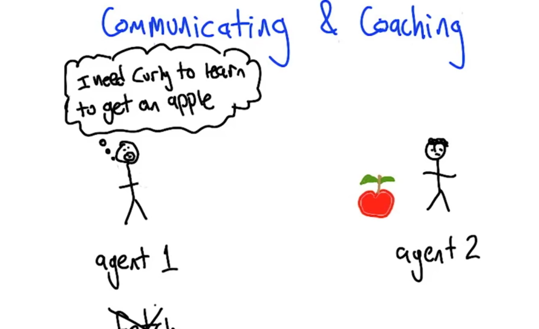 Communicating & Coaching
I need Curly to learn
to get an apple
agent 1
agent 2